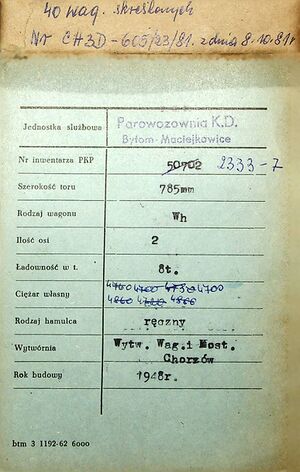 40 wag. skreślonych
Nr CH3D-605/23/81. z dnia 8.10.81r
Jednostka służbowa Parowozownia K.D.
Bytom-Maciejkowice
Nr inwentarza PKP 50702 2333-7
Szerokość toru 785mm
Rodzaj wagonu Wh
Ilość osi 2
Ładowność w t. 8t.
Ciężar własny 4700
Rodzaj hamulca ręczny
Wytwórnia Wytw. Wag.i Most.
Chorzów
Rok budowy 1948r.
btm 3 1192-62 6000